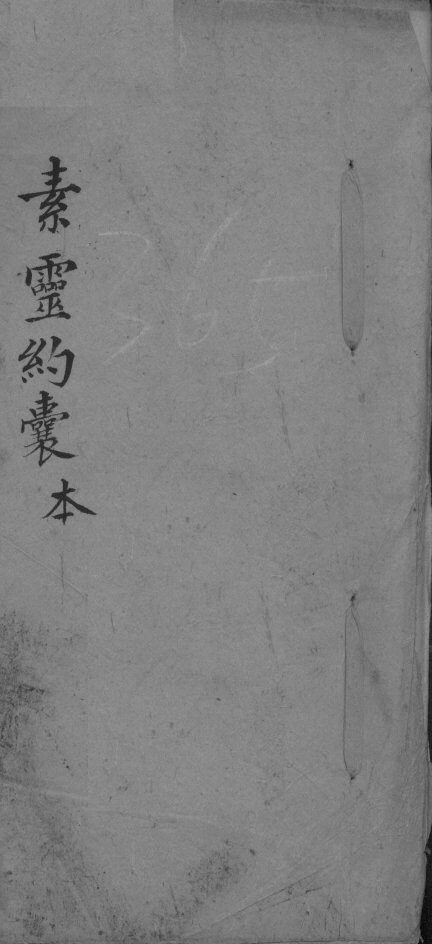 素靈約囊 本
365